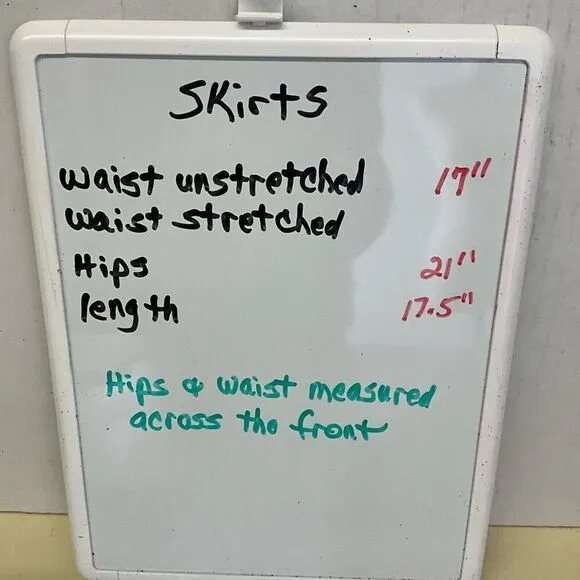 Skirts
waist unstretched 17"
waist stretched
Hips 21"
length 17.5"
Hips & waist measured
across the front